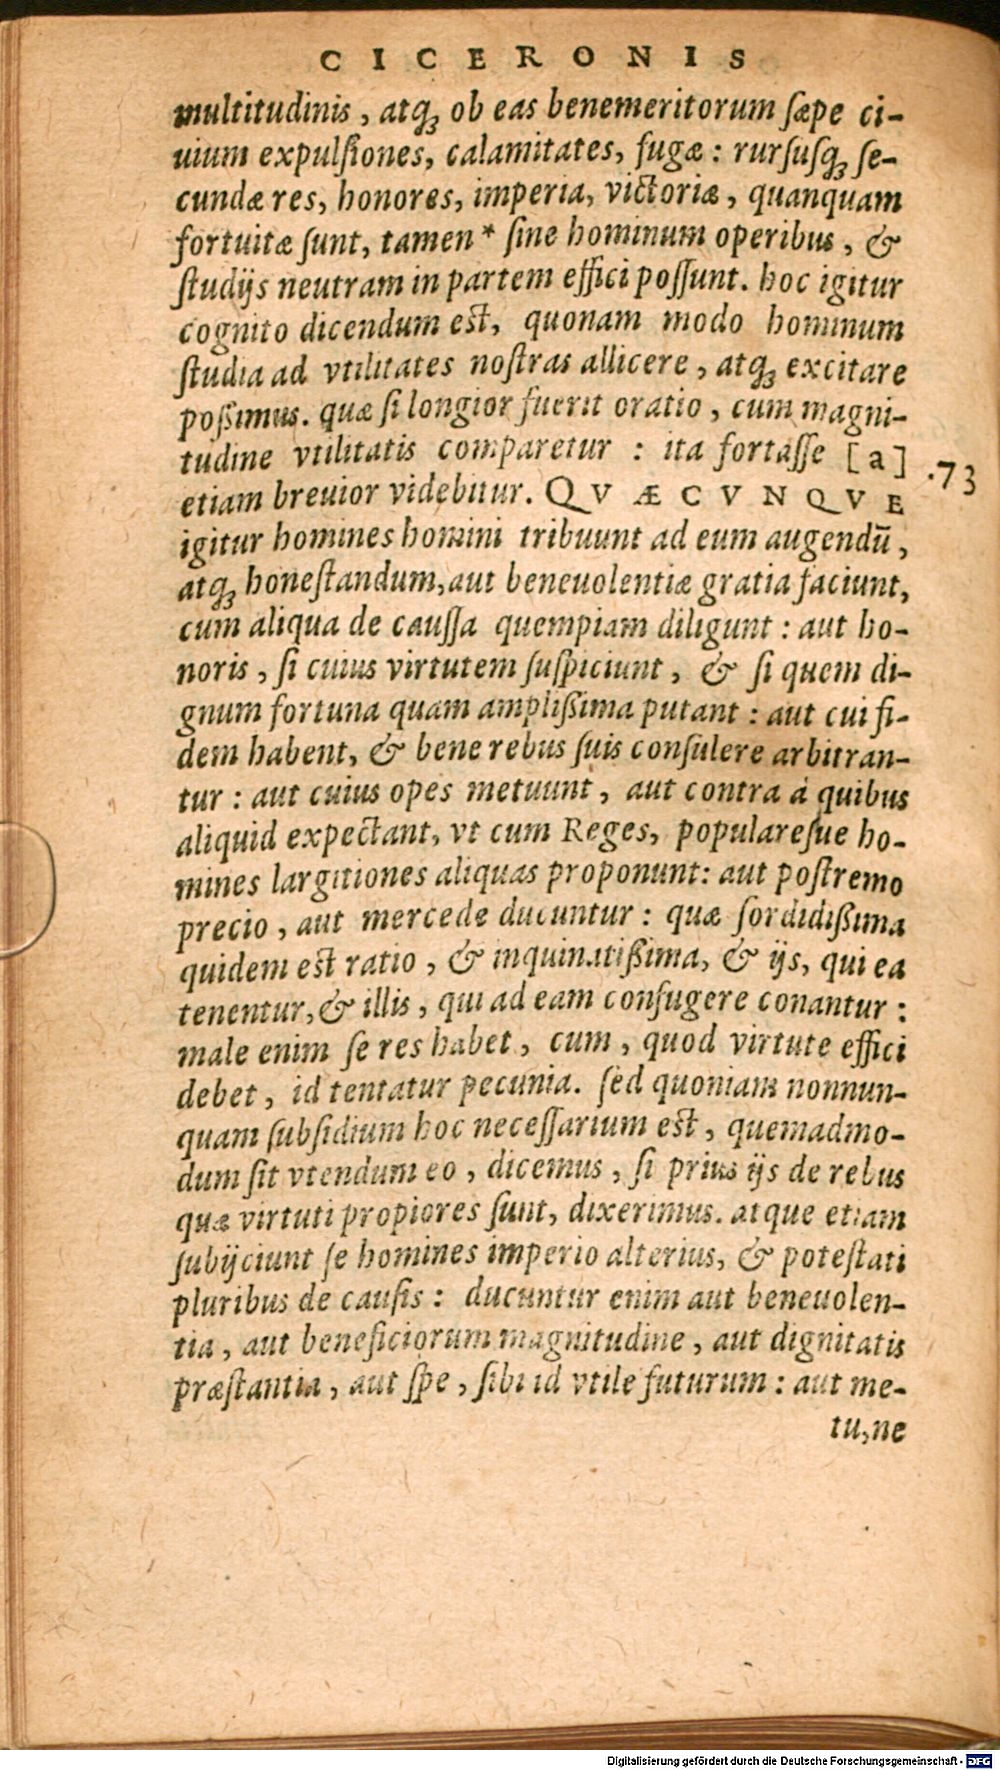 CICERONIS
multitudinis, atq́ꝫ ob eas benemeritorum sæpe ci-
uium expulsiones, calamitates, fugæ: rursusq́ꝫ se-
cundæ res, honores, imperia, victoriæ, quanquam
fortuitæ sunt, tamen* sine hominum operibus, &
studijs neutram in partem effici possunt. hoc igitur
cognito dicendum est, quonam modo hominum
studia ad vtilitates nostras allicere, atq́ꝫ excitare
possimus. quæ si longior fuerit oratio, cum magni-
tudine vtilitatis comparetur: ita fortasse [a]
.73
etiam breuior videbitur. QVÆCVNQVE
igitur homines homini tribuunt ad eum augendū,
atq́ꝫ honestandum, aut beneuolentiæ gratia faciunt,
cum aliqua de caussa quempiam diligunt: aut ho-
noris, si cuius virtutem suspiciunt, & si quem di-
gnum fortuna quam amplissima putant: aut cui fi-
dem habent, & bene rebus suis consulere arbitran-
tur: aut cuius opes metuunt, aut contra à quibus
aliquid expectant, vt cum Reges, popularesue ho-
mines largitiones aliquas proponunt: aut postremo
precio, aut mercede ducuntur: quæ sordidissima
quidem est ratio, & inquinatissima, & ijs, qui ea
tenentur, & illis, qui ad eam confugere conantur:
male enim se res habet, cum, quod virtute effici
debet, id tentatur pecunia. sed quoniam nonnun-
quam subsidium hoc necessarium est, quemadmo-
dum sit vtendum eo, dicemus, si prius ijs de rebus
quæ virtuti propiores sunt, dixerimus. atque etiam
subijciunt se homines imperio alterius, & potestati
pluribus de causis: ducuntur enim aut beneuolen-
tia, aut beneficiorum magnitudine, aut dignitatis
præstantia, aut spe, sibi id vtile futurum: aut me-
tu, ne
Digitalisierung gefördert durch die Deutsche Forschungsgemeinschaft - DFG